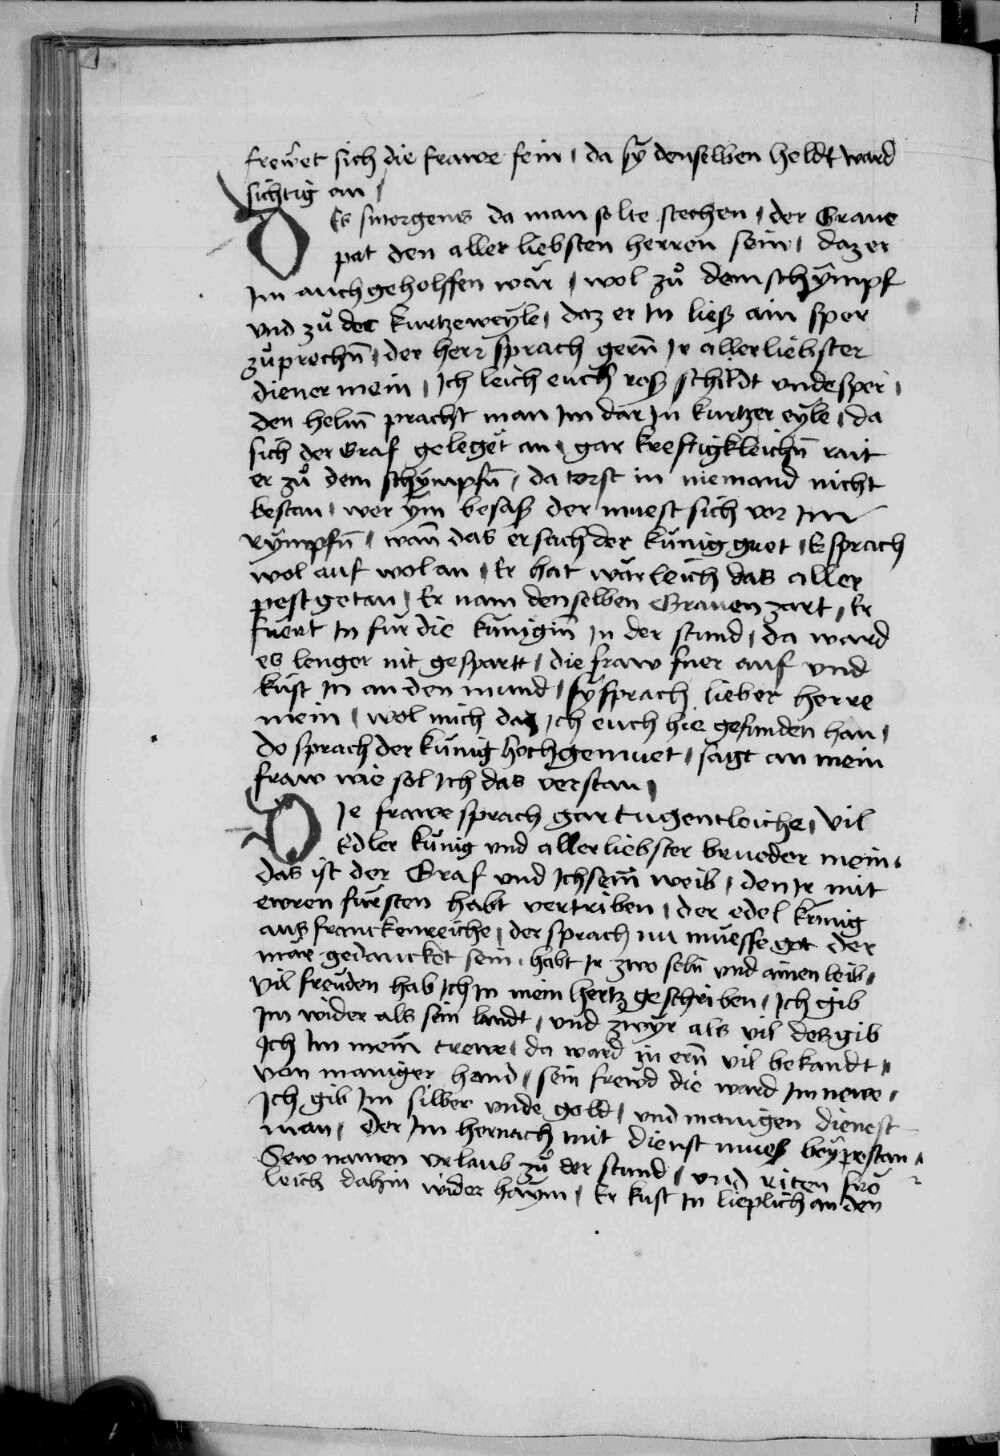 frewet sich die frawe fein / da sÿ denselben heldt ward
sichtig an /
Des smorgens da man solte stechen / der Graue
pat den aller liebsten herren sein / daz er
Im auch geholffen wär / wol zů dem schÿmpf
vnd zů der kurtzeweyle / daz er In liesz ain sper
zůprechn̄ / der herr sprach gern̄ Ir allerliebster
diener mein / Ich leich euch rosz schildt vnde sper /
den helm̄ pracht man Im dar In kurtzer eyle / da
sich der Graf geleget an / gar kreftigkleichn̄ rait
er zů dem schÿmpfn̄ / da torst in niemand nicht
bestan / wer ÿm besasz der muest sich vor Im
rÿmpfn̄ / wan̄ das ersach der künig guet / Er sprach
wol auf wolan / Er hat wärleich das aller
pest getan / Er nam denselben Grauen zart / Er
fuert In für die künigin̄ In der stund / da ward
es lenger nit gespartt / die fraw fuer auf vnd
kust In an den mund / sÿ sprach lieber herre
mein / wol mich daz ich euch hie gefunden han /
do sprach der künig hochgemuet / sagt an mein
fraw wie sol Ich das verstan /
DIe frawe sprach gar tugentleiche / vil
Edler künig vnd allerliebster brueder mein /
das ist der Graf vnd Ich sein̄ weib / den Ir mit
ewren fürsten habt vertriben / der edel künig
aus franckenreiche / der sprach nu muesse got der
mär gedancket sein / habt Ir zwo seln̄ vnd ainen leib /
vil freuden hab Ich In mein hertz geschriben / Ich gib
Im wider als sein landt / vnd zwyr als vil des gib
Ich Im mein̄ trewe / da ward in ern̄ vil bekandt /
von maniger hand / sein frewd die ward Im newe /
Ich gib Im silber vnde gold / vnd manigen dienest
man / der Im hernach mit dienst mues beÿ pestan /
Sew namen vrlaub zů der stund / vnd riten frö
leich dahin wider haÿm / Er kust In lieplich an den